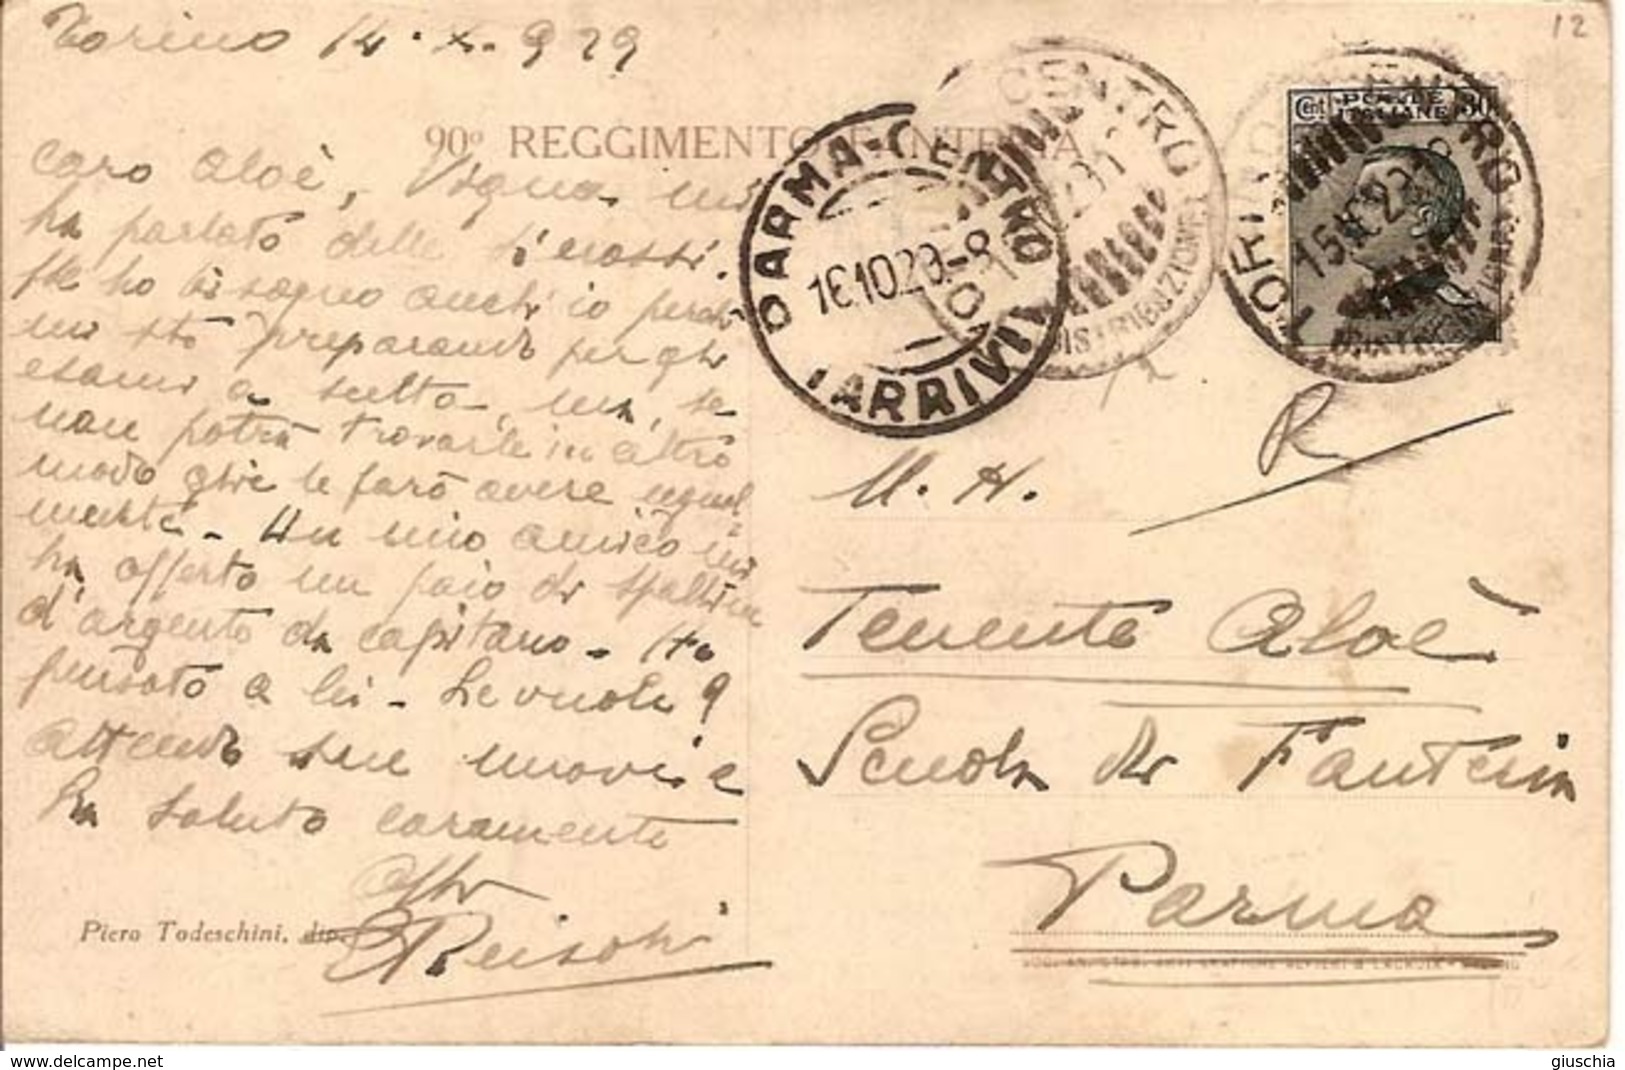 Torino 14.X.929
12
90° REGGIMENTO FANTERIA
Caro Aloè, Vigna mi
ha parlato delle
Ne ho bisogno anch'io perchè
mi sto preparando per gli
esami a scelta, ma, se
non potrà trovarle in altro
modo gliele farò avere ugual
mente. Un mio amico mi
ha offerto un paio di spalline
d'argento da capitano. Ho
pensato a lei. Le vuole?
Attendo sue nuove e
La saluto caramente
Piero Todeschini, dip.
PARMA-CENTRO
16.10.29-8
(ARRIVI)
CENTRO
DISTRIBUZIONE
TORINO CENTRO
15 X 29
Cent POSTE ITALIANE 30
R
M. H.
Tenente Aloè
Scuola di Fanteria
Parma
giuschia
delcampe.net